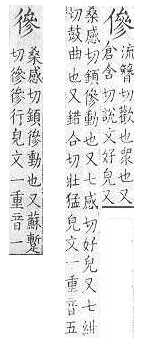 傪
流簪切歡也眾也又
倉含切說文好皃又
桑感切鎖傪動也又七感切好皃又七紺
切鼓曲也又錯合切壯猛皃文一重音五
桑感切鎖動也又蘇蹔
切行皃文一重音一